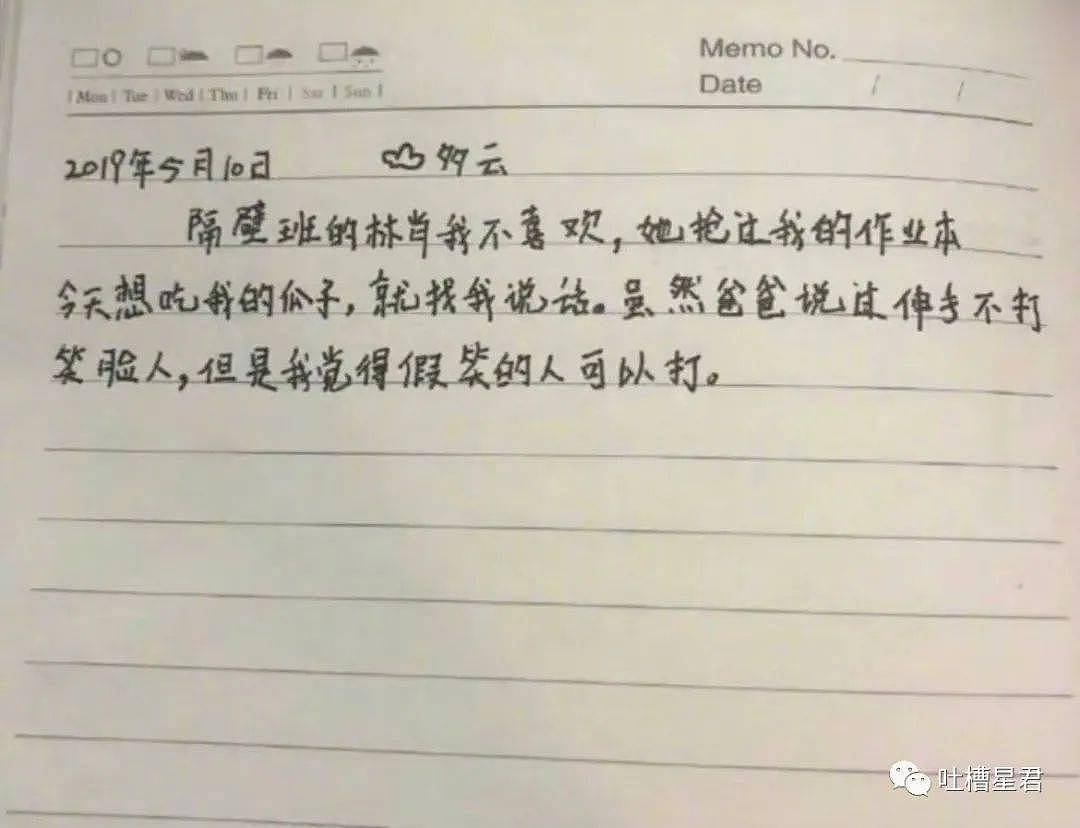 Memo No.
Mon Tue Wed Thu Fri Sat Sun
Date / /
2019年5月10日 多云
隔壁班的林肖我不喜欢，她抢过我的作业本
今天想吃我的瓜子，就找我说话。虽然爸爸说过伸手不打
笑脸人，但是我觉得假笑的人可以打。
吐槽星君